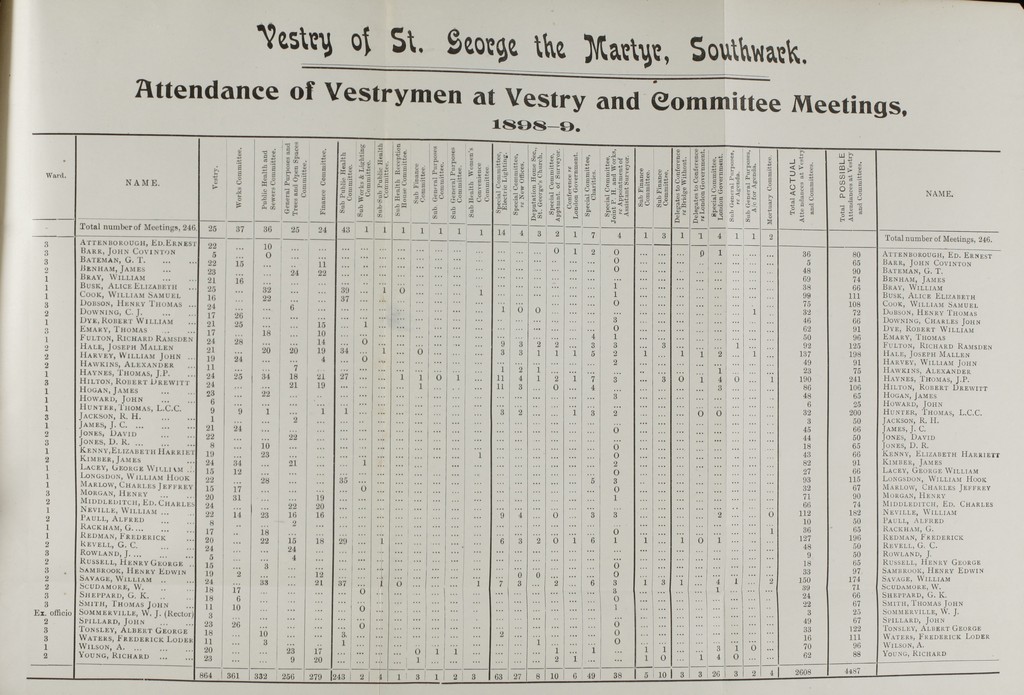 Vestry of St. George the Martyr, Southwark.
Attendance of Vestrymen at Vestry and Committee Meetings,
1898-9.
Ward. NAME. Vestry. Works Committee. Public Health and Sewers Committee. General Purposes and Trees and Open Spaces Committee. Finance Committee. Sub Public Health Committee. Sub Works & Lighting Committee. Sub-Sub Public Health Committee. Sub Health Reception House Committee. Sub Finance Committee. Sub General Purposes Committee. Sub General Purposes Committee. Sub Health Women's Convenience Committee. Special Committee, Electric Lighting. Special Committee, New Offices. Deputation Home Sec., St. George's Church. Special Committee, Appmnt. of Surveyor. Conference re London Government. Special Committee, Charities. Sub Finance Committee. Sub Finance Committee. Delegates to Conference re Bridge Without. Delegates to Conference re London Government. Special Committee, London Government. Mortuary Committee. Total ACTUAL Attendances at Vestry and Committees. Total POSSIBLE Attendances at Vestry and Committees. NAME.
Total number of Meetings, 246. 25 37 36 25 24 43 1 1 1 1 1 1 1 14 4 3 2 1 7 4 1 3 1 1 4 1 1 2 Total number of Meetings, 246.
3 ATTENBOROUGH, ED. ERNEST 22 ... 10 36 80 ATTENBOROUGH, ED. ERNEST
3 BARR, JOHN COVINTON 5 ... 0 5 65 BARR, JOHN COVINTON
3 BATEMAN, G. T. 22 15 ... ... 11 48 90 BATEMAN, G. T.
2 BENHAM, JAMES 23 ... ... 24 22 69 74 BENHAM, JAMES
1 BRAY, WILLIAM 21 16 38 66 BRAY, WILLIAM
1 BUSK, ALICE ELIZABETH 25 ... 32 ... ... 39 ... 1 0 99 111 BUSK, ALICE ELIZABETH
1 COOK, WILLIAM SAMUEL 16 ... 22 ... ... 37 75 108 COOK, WILLIAM SAMUEL
3 DOBSON, HENRY THOMAS 24 ... ... 6 32 72 DOBSON, HENRY THOMAS
2 DOWNING, C. J. 17 26 46 66 DOWNING, CHARLES JOHN
1 DYE, ROBERT WILLIAM 21 25 ... ... 15 ... 1 62 91 DYE, ROBERT WILLIAM
3 EMARY, THOMAS 17 ... 18 ... 10 50 96 EMARY, THOMAS
1 FULTON, RICHARD RAMSDEN 24 28 ... ... 14 ... 0 92 125 FULTON, RICHARD RAMSDEN
2 HALE, JOSEPH MALLEN 21 ... 20 20 19 34 ... 1 ... 0 137 198 HALE, JOSEPH MALLEN
2 HARVEY, WILLIAM JOHN 19 24 ... ... 4 ... 0 49 91 HARVEY, WILLIAM JOHN
2 HAWKINS, ALEXANDER 11 ... ... 7 23 75 HAWKINS, ALEXANDER
1 HAYNES, THOMAS, J.P. 24 25 34 18 21 27 ... ... 1 1 0 1 ... 11 4 1 2 1 7 3 ... 3 0 1 4 0 ... 1 190 241 HAYNES, THOMAS, J.P.
3 HILTON, ROBERT DREWITT 24 ... ... 21 19 86 106 HILTON, ROBERT DREWITT
1 HOGAN, JAMES 23 ... 22 48 65 HOGAN, JAMES
1 HOWARD, JOHN 6 6 25 HOWARD, JOHN
1 HUNTER, THOMAS, L.C.C. 9 9 1 ... 1 1 32 200 HUNTER, THOMAS, L.C.C.
3 JACKSON, R. H. 1 ... ... 2 3 50 JACKSON, R. H.
1 JAMES, J. C. 21 24 45 66 JAMES, J. C.
2 JONES, DAVID 22 ... ... 22 44 50 JONES, DAVID
3 JONES, D. R. 8 ... 10 18 65 JONES, D. R.
1 KENNY, ELIZABETH HARRIET 19 ... 23 43 66 KENNY, ELIZABETH HARRIETT
2 KIMBER, JAMES 24 34 ... 21 ... ... 1 82 91 KIMBER, JAMES
1 LACEY, GEORGE WILLIAM 15 12 27 66 LACEY, GEORGE WILLIAM
1 LONGSDON, WILLIAM HOOK 22 ... 28 ... ... 35 93 115 LONGSDON, WILLIAM HOOK
1 MARLOW, CHARLES JEFFREY 15 17 ... ... ... ... 0 32 67 MARLOW, CHARLES JEFFREY
3 MORGAN, HENRY 20 31 ... ... 19 71 90 MORGAN, HENRY
2 MIDDLEDITCH, ED. CHARLES 24 ... ... 22 20 66 74 MIDDLEDITCH, ED. CHARLES
1 NEVILLE, WILLIAM 22 14 23 16 16 112 182 NEVILLE, WILLIAM
2 PAULL, ALFRED 8 ... ... 2 10 50 PAULL, ALFRED
1 RACKHAM, G. 17 ... 18 36 65 RACKHAM, G.
1 REDMAN, FREDERICK 20 ... 22 15 18 29 ... 1 127 196 REDMAN, FREDERICK
2 REVELL, G. C. 24 ... ... 24 48 50 REVELL, G. C.
3 ROWLAND, J. 5 ... ... 4 9 50 ROWLAND, J.
2 RUSSELL, HENRY GEORGE 15 ... 3 18 65 RUSSELL, HENRY GEORGE
3 SAMBROOK, HENRY EDWIN 19 2 ... ... 12 33 97 SAMBROOK, HENRY EDWIN
2 SAVAGE, WILLIAM 24 ... 33 ... 21 37 ... 1 0 150 174 SAVAGE, WILLIAM
2 SCUDAMORE, W. 18 17 ... ... ... ... 0 39 71 SCUDAMORE, W.
3 SHEPPARD, G. K. 18 6 24 66 SHEPPARD, G. K.
3 SMITH, THOMAS JOHN 11 10 ... ... ... ... 0 22 67 SMITH, THOMAS JOHN
Ex. officio SOMMERVILLE, W. J. (Rector) 3 3 25 SOMMERVILLE, W. J.
2 SPILLARD, JOHN 23 26 ... ... ... ... 0 49 67 SPILLARD, JOHN
3 TONSLEY, ALBERT GEORGE 18 ... 10 ... ... 3 33 122 TONSLEY, ALBERT GEORGE
3 WATERS, FREDERICK LODER 11 ... 3 ... ... 1 16 111 WATERS, FREDERICK LODER
1 WILSON, A. 20 ... ... 23 17 70 96 WILSON, A.
2 YOUNG, RICHARD 23 ... ... 9 20 62 88 YOUNG, RICHARD
864 361 332 256 279 243 2 4 1 3 1 2 3 63 27 8 10 6 49 38 5 10 3 3 26 3 2 4 2608 4487